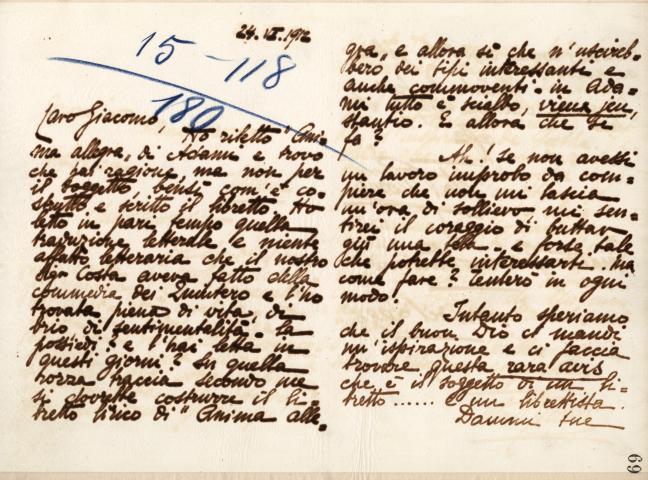 24. VI. 1912
15 - 118
180
Caro Giacomo, Ho riletto "Ani-
ma allegra„ di Adami e trovo
che hai ragione, ma non per
il soggetto, bensì com'è co-
struito e scritto il libretto. Ho
letto in pari tempo quella
traduzione letterale e niente
affatto letteraria che il nostro
Costa aveva fatto della
commedia dei Quintero e l'ho
trovata piena di vita, di
brio, di sentimentalità. La
possiedi? e l'hai letta in
questi giorni? Su quella
rozza traccia secondo me
si dovrebbe costruire il li-
bretto lirico di "Anima alle-
gra„ e allora sì che n'uscireb-
bero dei tipi interessanti e
anche commoventi. in Ada-
mi tutto è scialbo, vieux jeu,
stantio. E allora che si
fa?
Ah! se non avessi
un lavoro improbo da com-
piere che non mi lascia
un'ora di sollievo mi sen-
tirei il coraggio di buttar
giù una tela e forse tale
che potrebbe interessarti. Ma
come fare? Tenterò in ogni
modo.
Intanto speriamo
che il buon Dio ci mandi
un'ispirazione e ci faccia
trovare questa rara avis
che è il soggetto di un li-
bretto ...... e un librettista.
Dammi tue
69